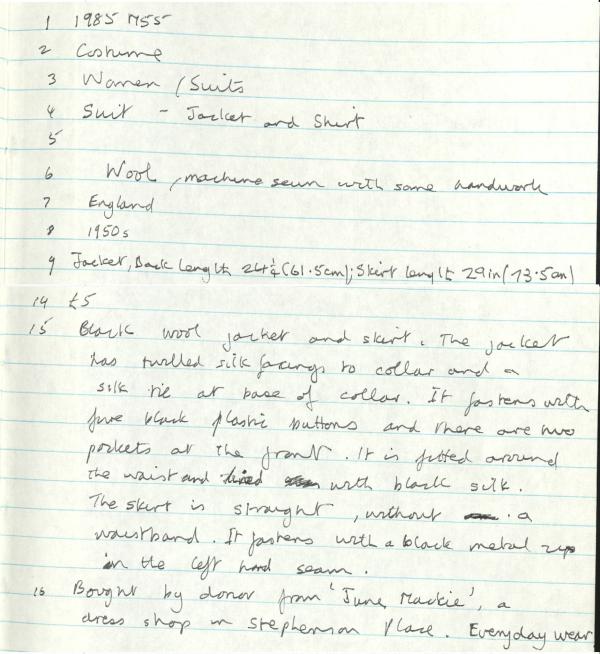 1 1985 M55
2 Costume
3 Women / Suits
4 Suit - Jacket and Skirt
5
6 Wool, machine sewn with some handwork
7 England
8 1950s
9 Jacket, Back length 24¼ (61.5cm); Skirt length 29in (73.5cm)
14 £5
15 Black wool jacket and skirt. The jacket
has twilled silk facings to collar and a
silk tie at base of collar. It fastens with
five black plastic buttons and there are two
pockets at the front. It is fitted around
the waist and lined with black silk.
The skirt is straight, without a
waistband. It fastens with a black metal zip
in the left hand seam.
16 Bought by donor from 'June Mackie', a
dress shop in Stephenson Place. Everyday wear